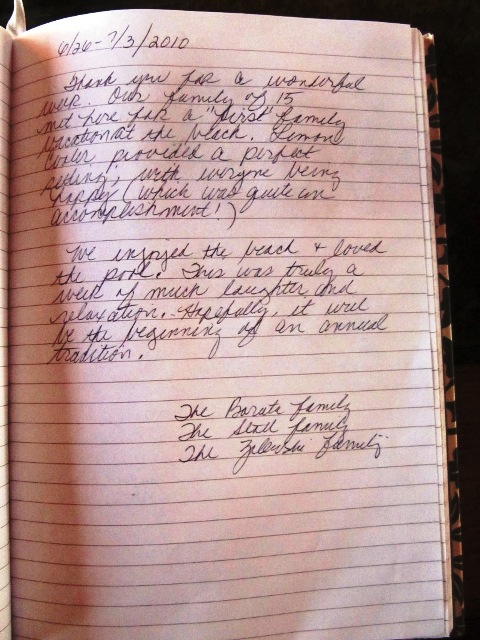 6/26-7/3/2010
Thank you for a wonderful
week. Our family of 15
met here for a "first" family
vacation at the beach. Lemon
Cooler provided a perfect
setting, with everyone being
happy (which was quite an
accomplishment!)
We enjoyed the beach & loved
the pool. This was truly a
week of much laughter and
relaxation. Hopefully, it will
be the beginning of an annual
tradition.
The Barata family
The family
The Zalewski family